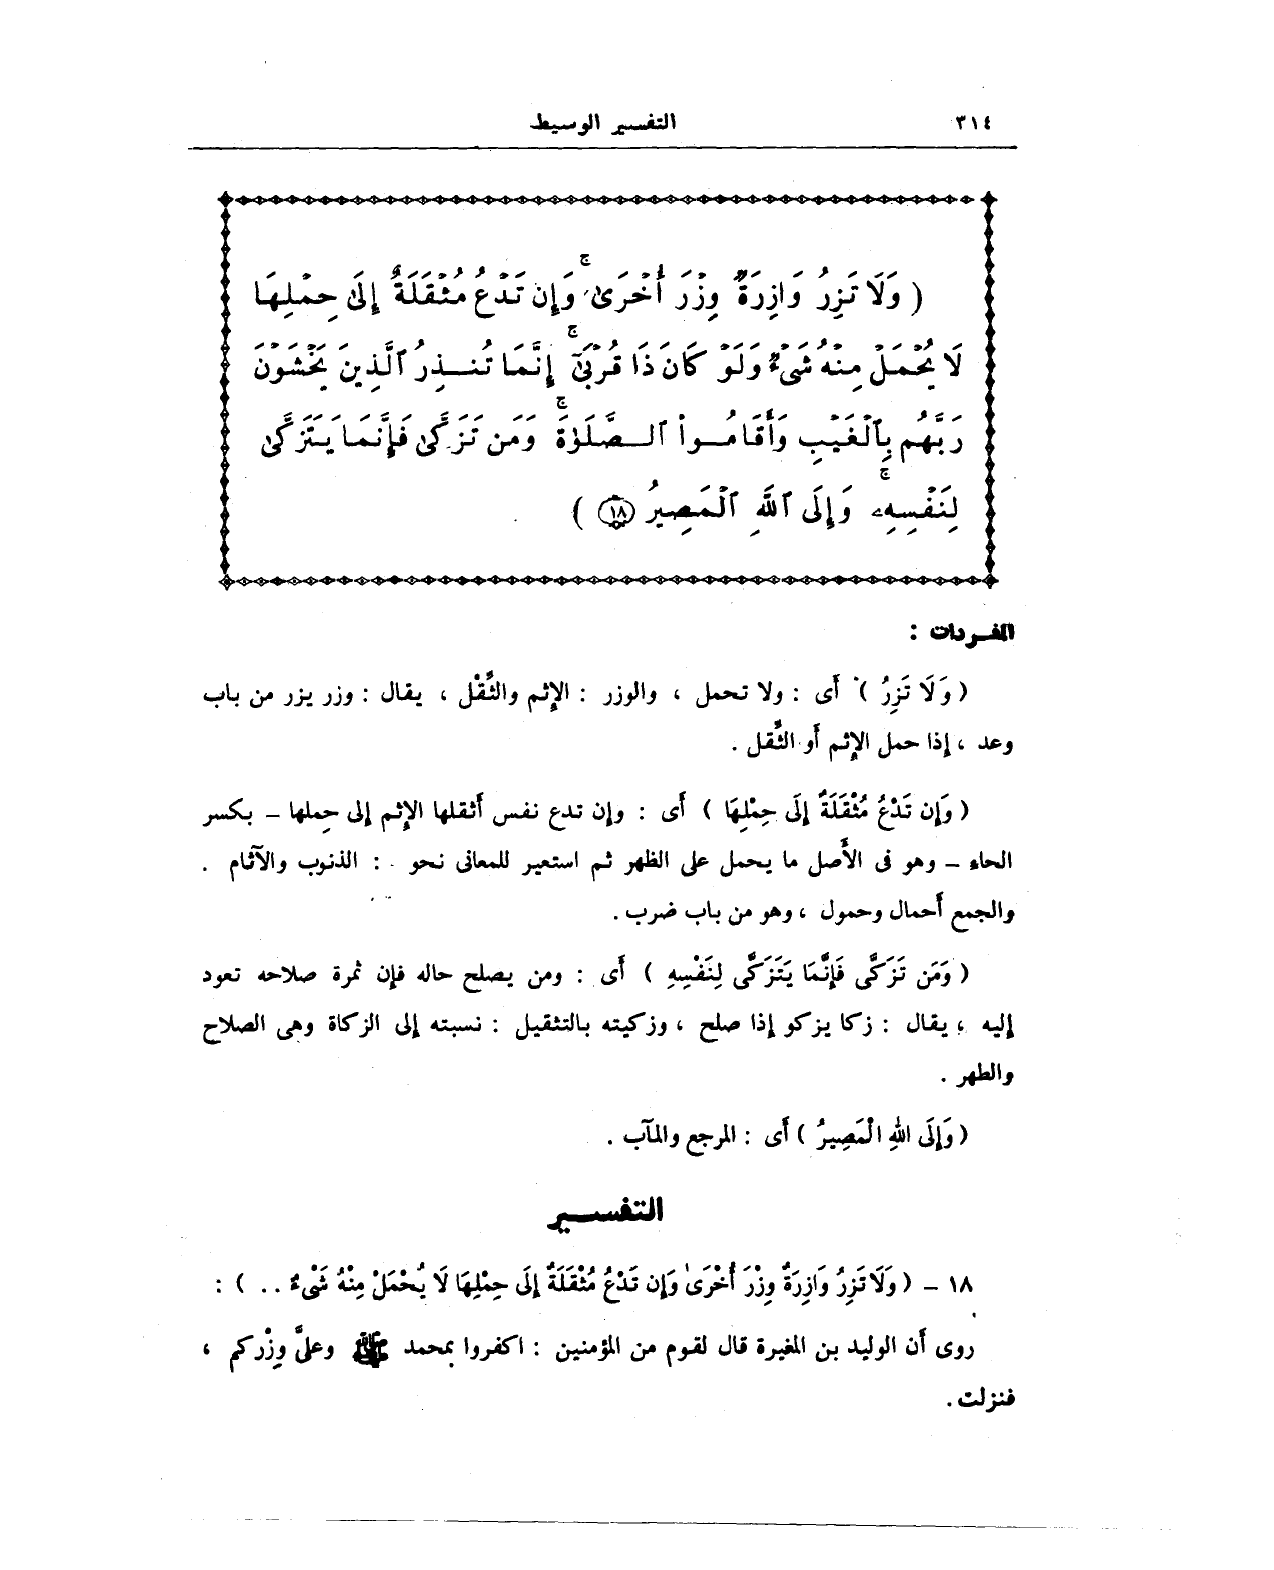 ٣١٤
التفسير الوسيط
( وَلَا تَزِرُ وَازِرَةٌ وِزْرَ أُخْرَىٰ ۚ وَإِن تَدْعُ مُثْقَلَةٌ إِلَىٰ حِمْلِهَا
لَا يُحْمَلْ مِنْهُ شَىْءٌ وَلَوْ كَانَ ذَا قُرْبَىٰٓ ۗ إِنَّمَا تُنذِرُ ٱلَّذِينَ يَخْشَوْنَ
رَبَّهُم بِٱلْغَيْبِ وَأَقَامُوا۟ ٱلصَّلَوٰةَ ۚ وَمَن تَزَكَّىٰ فَإِنَّمَا يَتَزَكَّىٰ
لِنَفْسِهِۦ ۚ وَإِلَى ٱللَّهِ ٱلْمَصِيرُ ﴿١٨﴾ )
المفردات :
( وَلَا تَزِرُ ) أَى : ولا تحمل ، والوزر : الإِثم والثِّقْل ، يقال : وزر يزر من باب
وعد ، إذا حمل الإِثم أَو الثِّقل .
( وَإِن تَدْعُ مُثْقَلَةٌ إِلَى حِمْلِهَا ) أَى : وإن تدع نفس أَثقلها الإِثم إلى حِملها – بكسر
الحاء – وهو فى الأَصل ما يحمل على الظهر ثم استعير للمعانى نحو : الذنوب والآثام .
والجمع أَحمال وحمول ، وهو من باب ضرب .
( وَمَن تَزَكَّى فَإِنَّمَا يَتَزَكَّى لِنَفْسِهِ ) أَى : ومن يصلح حاله فإن ثمرة صلاحه تعود
إليه ، يقال : زكا يزكو إذا صلح ، وزكيته بالتثقيل : نسبته إلى الزكاة وهى الصلاح
والطهر .
( وَإِلَى اللهِ الْمَصِيرُ ) أَى : المرجع والمآب .
التفسير
١٨ – ( وَلَا تَزِرُ وَازِرَةٌ وِزْرَ أُخْرَىٰ وَإِن تَدْعُ مُثْقَلَةٌ إِلَى حِمْلِهَا لَا يُحْمَلْ مِنْهُ شَىْءٌ . . ) :
روى أَن الوليد بن المغيرة قال لقوم من المؤمنين : اكفروا بمحمد ﷺ وعلىَّ وِزْركم ،
فنزلت .